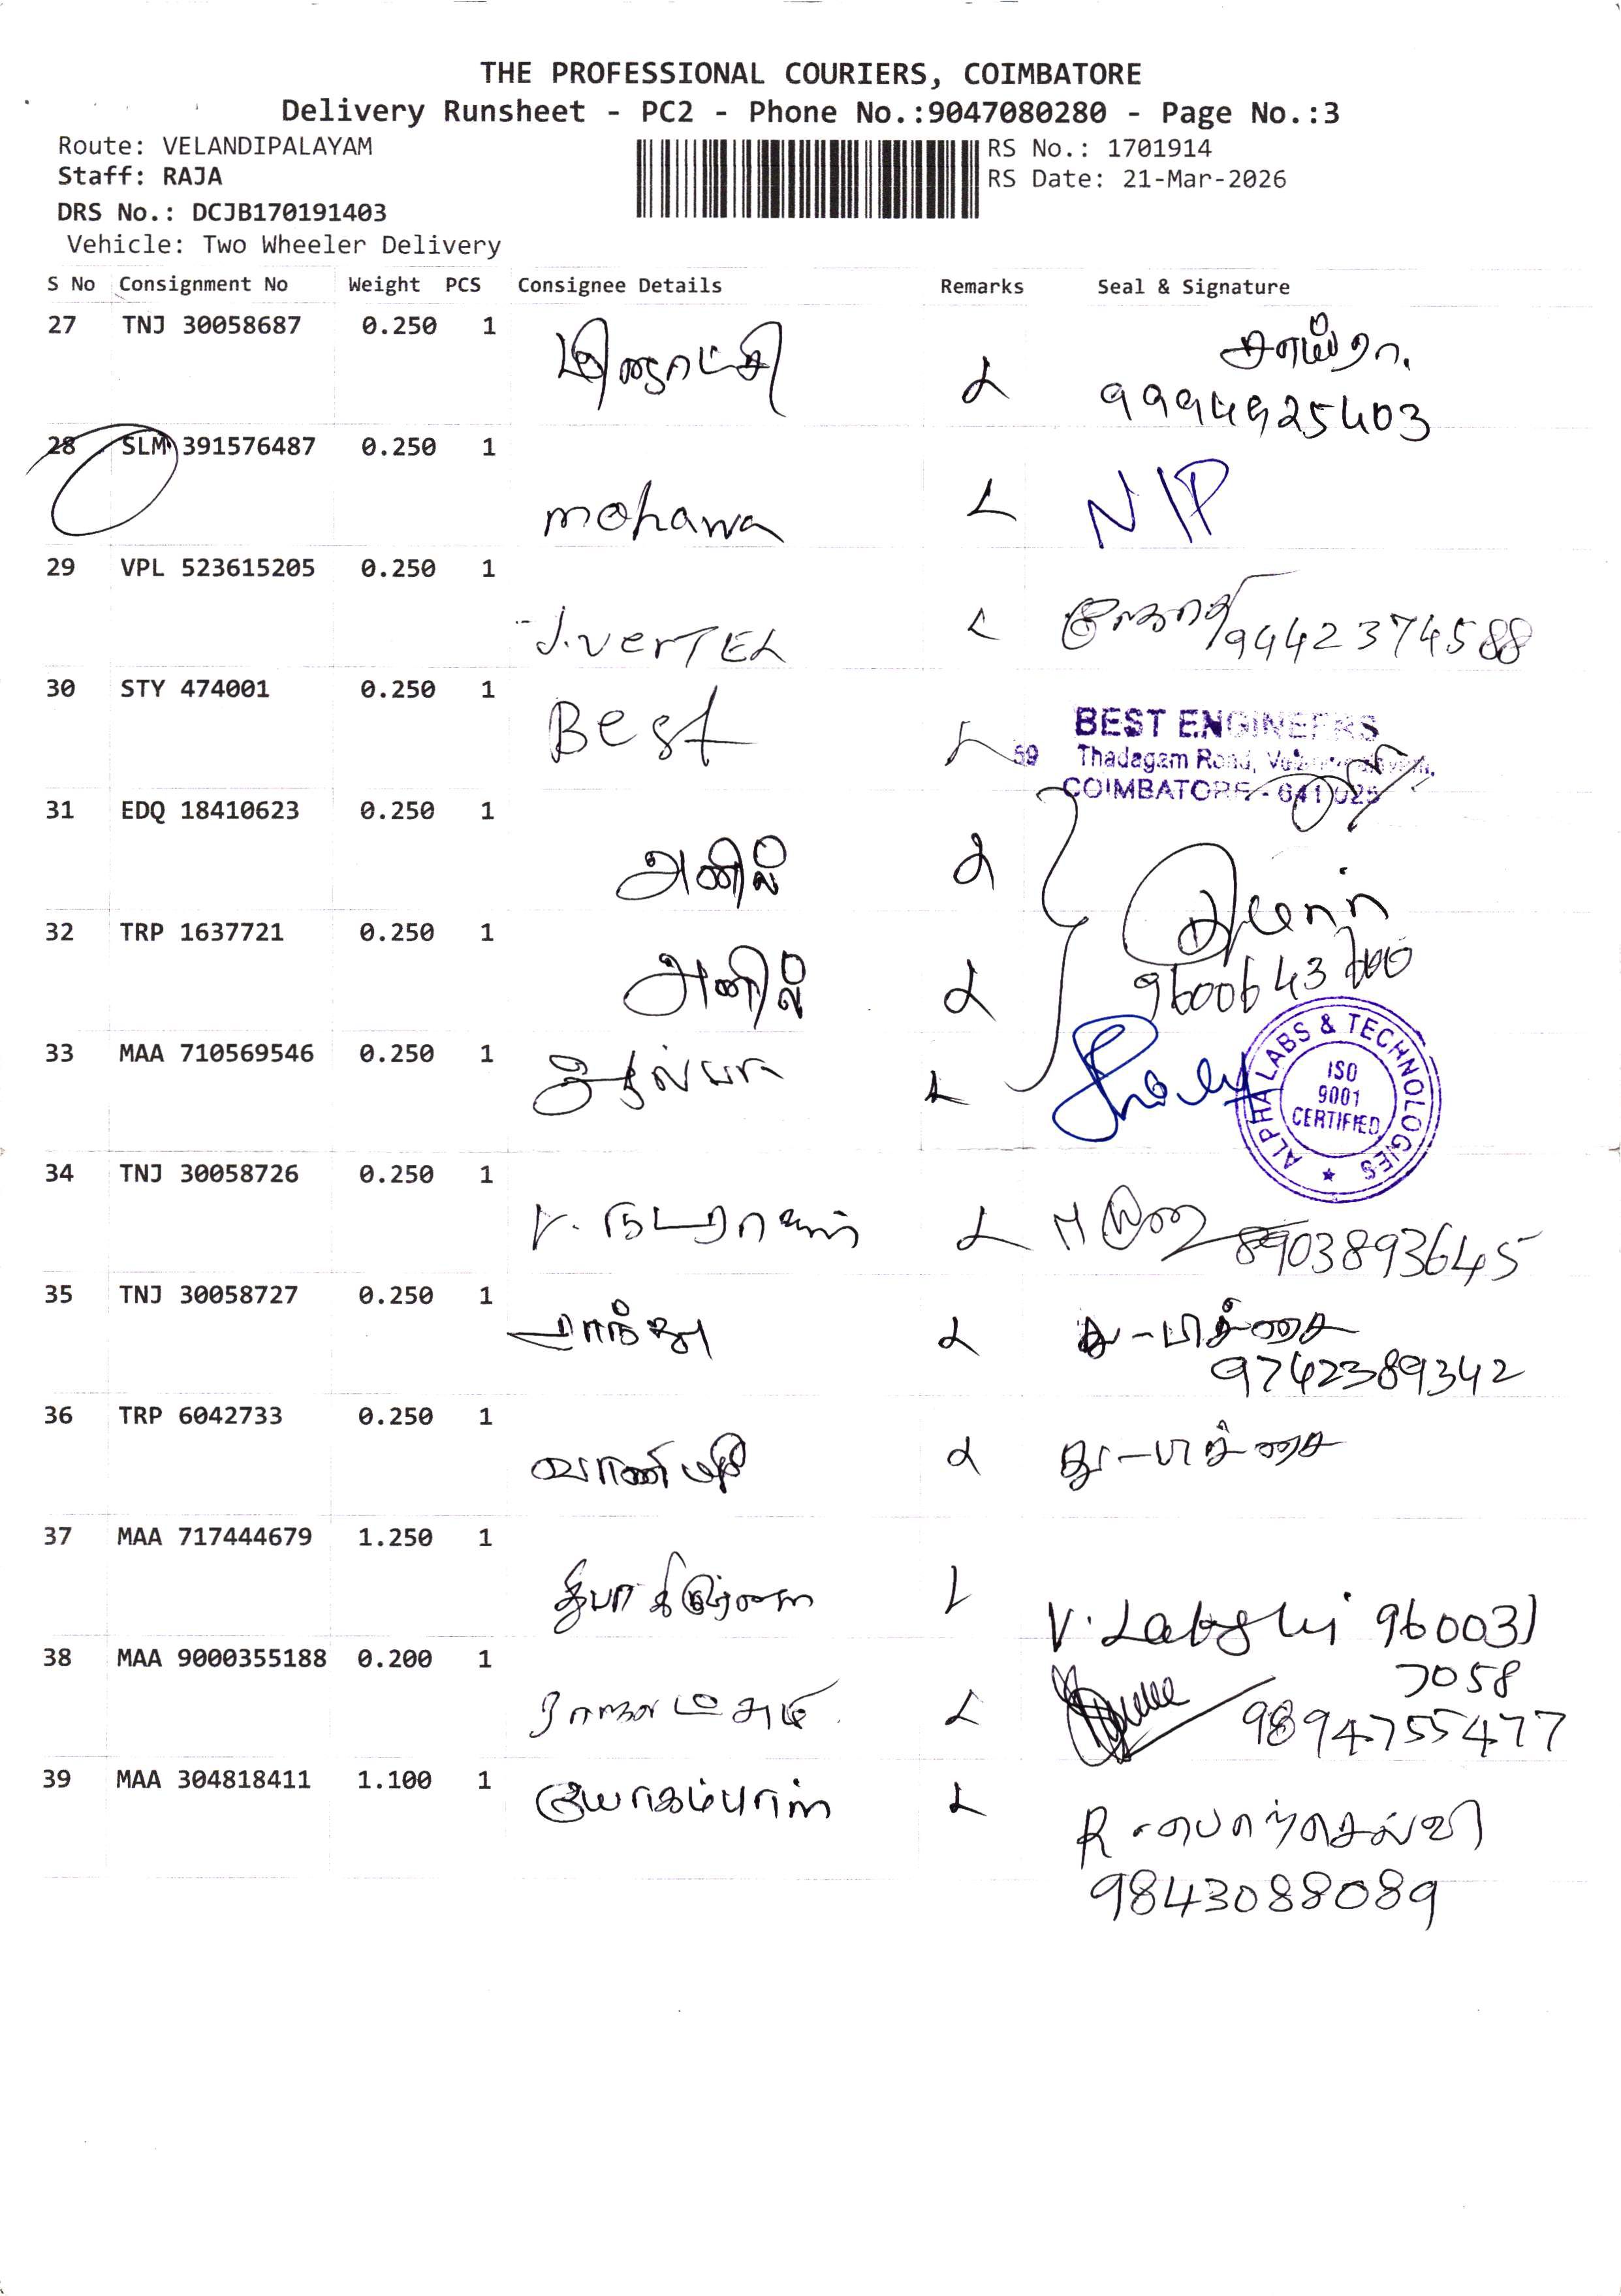 THE PROFESSIONAL COURIERS, COIMBATORE
Delivery Runsheet - PC2 - Phone No.:9047080280 - Page No.:3
Route: VELANDIPALAYAM
RS No.: 1701914
Staff: RAJA
RS Date: 21-Mar-2026
DRS No.: DCJB170191403
Vehicle: Two Wheeler Delivery
S No Consignment No Weight PCS Consignee Details Remarks Seal & Signature
27 TNJ 30058687 0.250 1 மீனாட்சி
9994925403
28 SLM 391576487 0.250 1
N/P
29 VPL 523615205 0.250 1
J.VerTEL 9442374588
30 STY 474001 0.250 1 Best
BEST ENGINEERS
59 Thadagam Road,
COIMBATORE - 641 025
31 EDQ 18410623 0.250 1
அனில்
32 TRP 1637721 0.250 1
அனில்
33 MAA 710569546 0.250 1
ALPHA LABS & TECHNOLOGIES
ISO
9001
CERTIFIED
34 TNJ 30058726 0.250 1
V. நடராஜன் 8903893645
35 TNJ 30058727 0.250 1
9742389342
36 TRP 6042733 0.250 1
37 MAA 717444679 1.250 1
960031
7058
38 MAA 9000355188 0.200 1
9894755477
39 MAA 304818411 1.100 1
R. பொற்செல்வி
9843088089